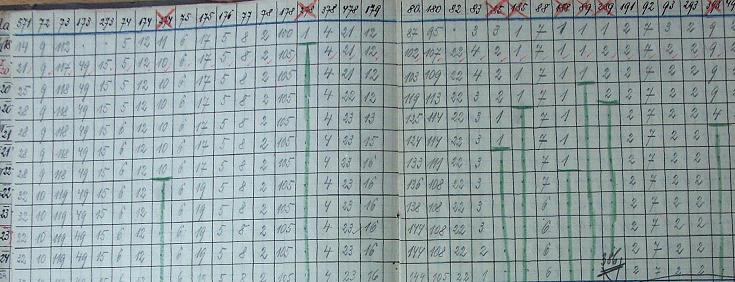 571 72 73 173 273 74 174 274 75 175 176 77 78 178 278 378 478 179 80 180 82 83 85 185 88 188 89 289 191 92 93 293
18 14 9 112 5 12 11 6 17 5 8 2 100 1 4 21 12 87 95 3 3 1 7 1 1 1 2 7 3 2 9
20 21 9 117 49 15 5 12 10 6 17 5 8 2 105 4 21 12 102 107 22 4 2 1 7 1 1 2 2 7 2 2 9
20 25 9 118 49 15 5 12 10 6 17 5 8 2 105 4 21 12 103 109 22 4 2 1 7 1 2 2 7 2 2 9
20 28 9 118 49 15 5 12 10 6 17 5 8 2 105 4 22 12 119 113 22 3 2 1 7 1 2 7 2 2 9
21 28 9 118 49 15 6 12 10 6 17 5 8 2 105 4 23 13 125 114 22 3 1 7 1 2 7 2 2 4
21 28 9 118 49 15 6 12 10 6 17 5 8 2 105 4 23 15 124 114 22 3 1 7 1 2 7 2 2
22 28 9 118 49 15 6 12 10 6 17 5 8 2 105 4 23 16 133 114 22 3 7 1 2 7 2 2
22 32 10 119 49 15 6 12 6 19 5 8 2 105 4 23 16 136 108 22 3 7 2 7 2 2
23 32 10 119 49 15 6 12 6 19 5 8 2 105 4 23 16 138 108 22 3 6 2 7 2 2
23 32 10 119 49 15 6 12 6 19 5 8 2 105 4 23 16 144 108 22 3 6 2 7 2 2
24 32 10 119 49 15 6 12 6 19 5 8 2 105 4 23 16 144 108 22 2 6 2 7 2 2
4 23 16 144 105 22 1 6 2 7 2 2